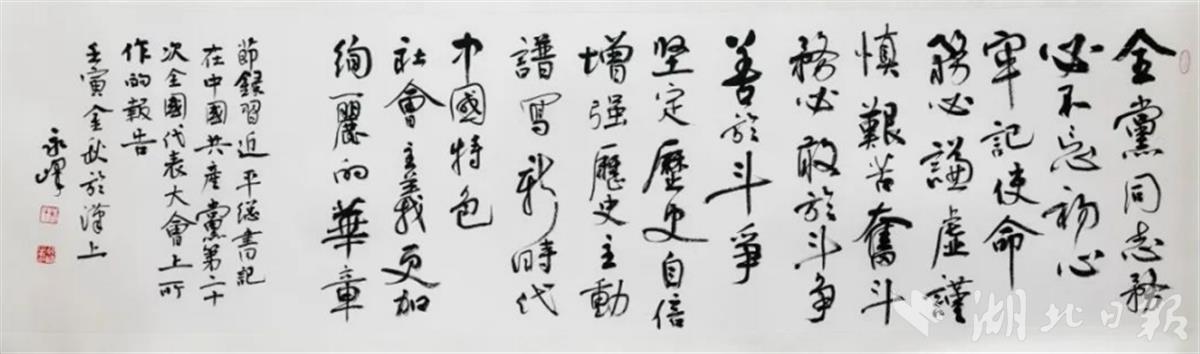 全黨同志務
必不忘初心
牢記使命
務必謙虛謹
慎艱苦奮斗
務必敢於斗争
善於斗爭
坚定歷史自信
增强歷史主動
譜寫新時代
中國特色
社會主義更加
绚麗的華章
節錄習近平總書記
在中國共産黨第二十
次全國代表大會上所
作的報告
壬寅金秋於漢上
永峰
湖北日報